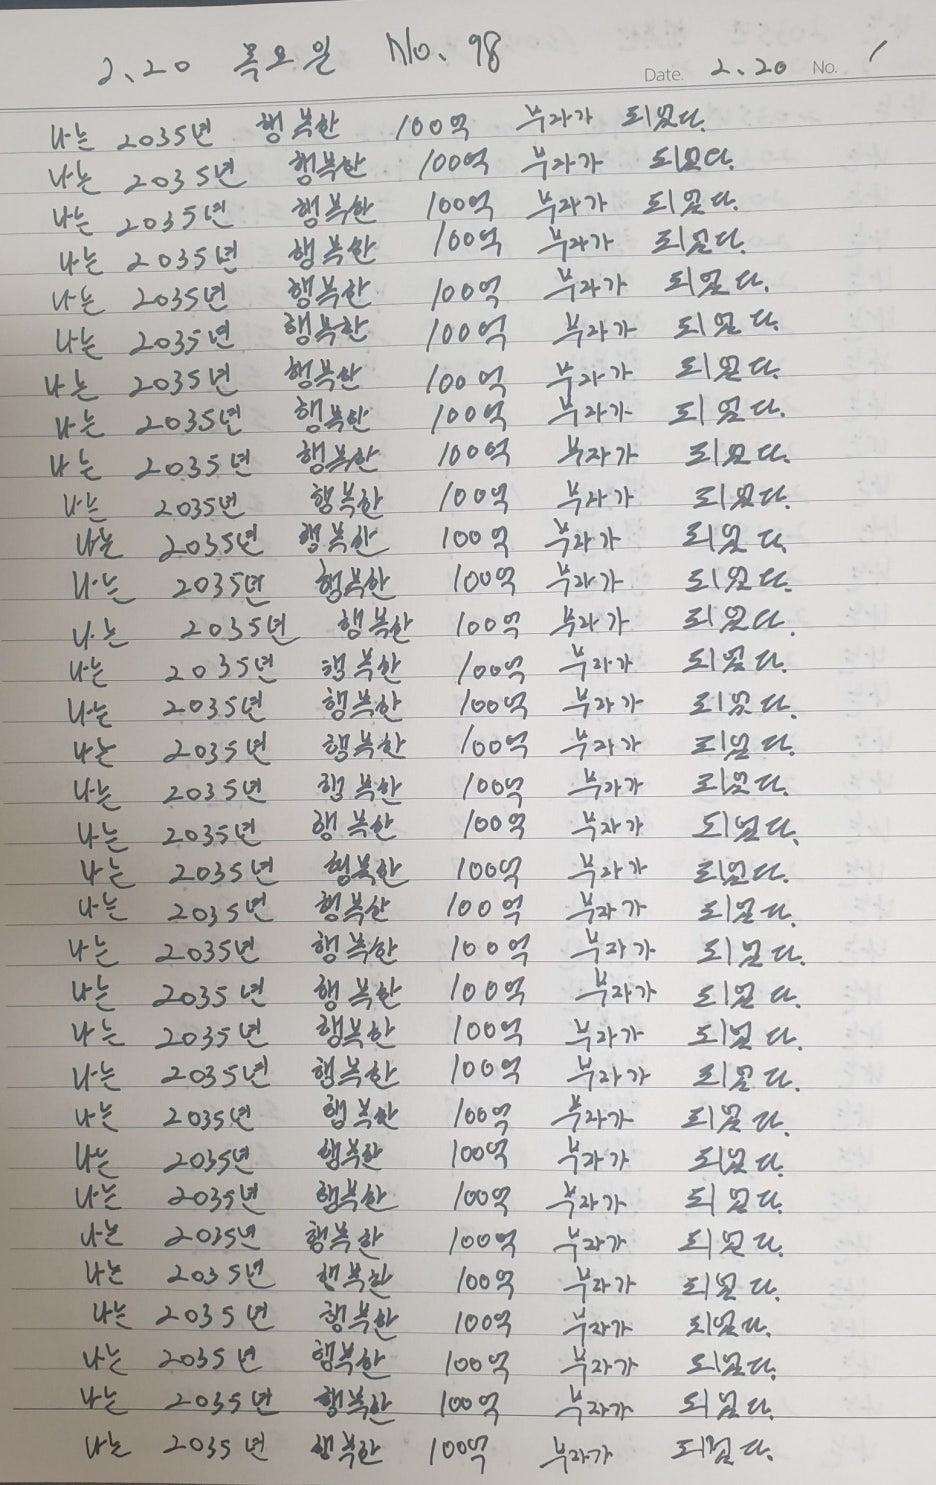 2.20 목요일 No. 98
Date. 2.20 No. 1
나는 2035년 행복한 100억 부자가 되었다.
나는 2035년 행복한 100억 부자가 되었다.
나는 2035년 행복한 100억 부자가 되었다.
나는 2035년 행복한 100억 부자가 되었다.
나는 2035년 행복한 100억 부자가 되었다.
나는 2035년 행복한 100억 부자가 되었다.
나는 2035년 행복한 100억 부자가 되었다.
나는 2035년 행복한 100억 부자가 되었다.
나는 2035년 행복한 100억 부자가 되었다.
나는 2035년 행복한 100억 부자가 되었다.
나는 2035년 행복한 100억 부자가 되었다.
나는 2035년 행복한 100억 부자가 되었다.
나는 2035년 행복한 100억 부자가 되었다.
나는 2035년 행복한 100억 부자가 되었다.
나는 2035년 행복한 100억 부자가 되었다.
나는 2035년 행복한 100억 부자가 되었다.
나는 2035년 행복한 100억 부자가 되었다.
나는 2035년 행복한 100억 부자가 되었다.
나는 2035년 행복한 100억 부자가 되었다.
나는 2035년 행복한 100억 부자가 되었다.
나는 2035년 행복한 100억 부자가 되었다.
나는 2035년 행복한 100억 부자가 되었다.
나는 2035년 행복한 100억 부자가 되었다.
나는 2035년 행복한 100억 부자가 되었다.
나는 2035년 행복한 100억 부자가 되었다.
나는 2035년 행복한 100억 부자가 되었다.
나는 2035년 행복한 100억 부자가 되었다.
나는 2035년 행복한 100억 부자가 되었다.
나는 2035년 행복한 100억 부자가 되었다.
나는 2035년 행복한 100억 부자가 되었다.
나는 2035년 행복한 100억 부자가 되었다.
나는 2035년 행복한 100억 부자가 되었다.
나는 2035년 행복한 100억 부자가 되었다.